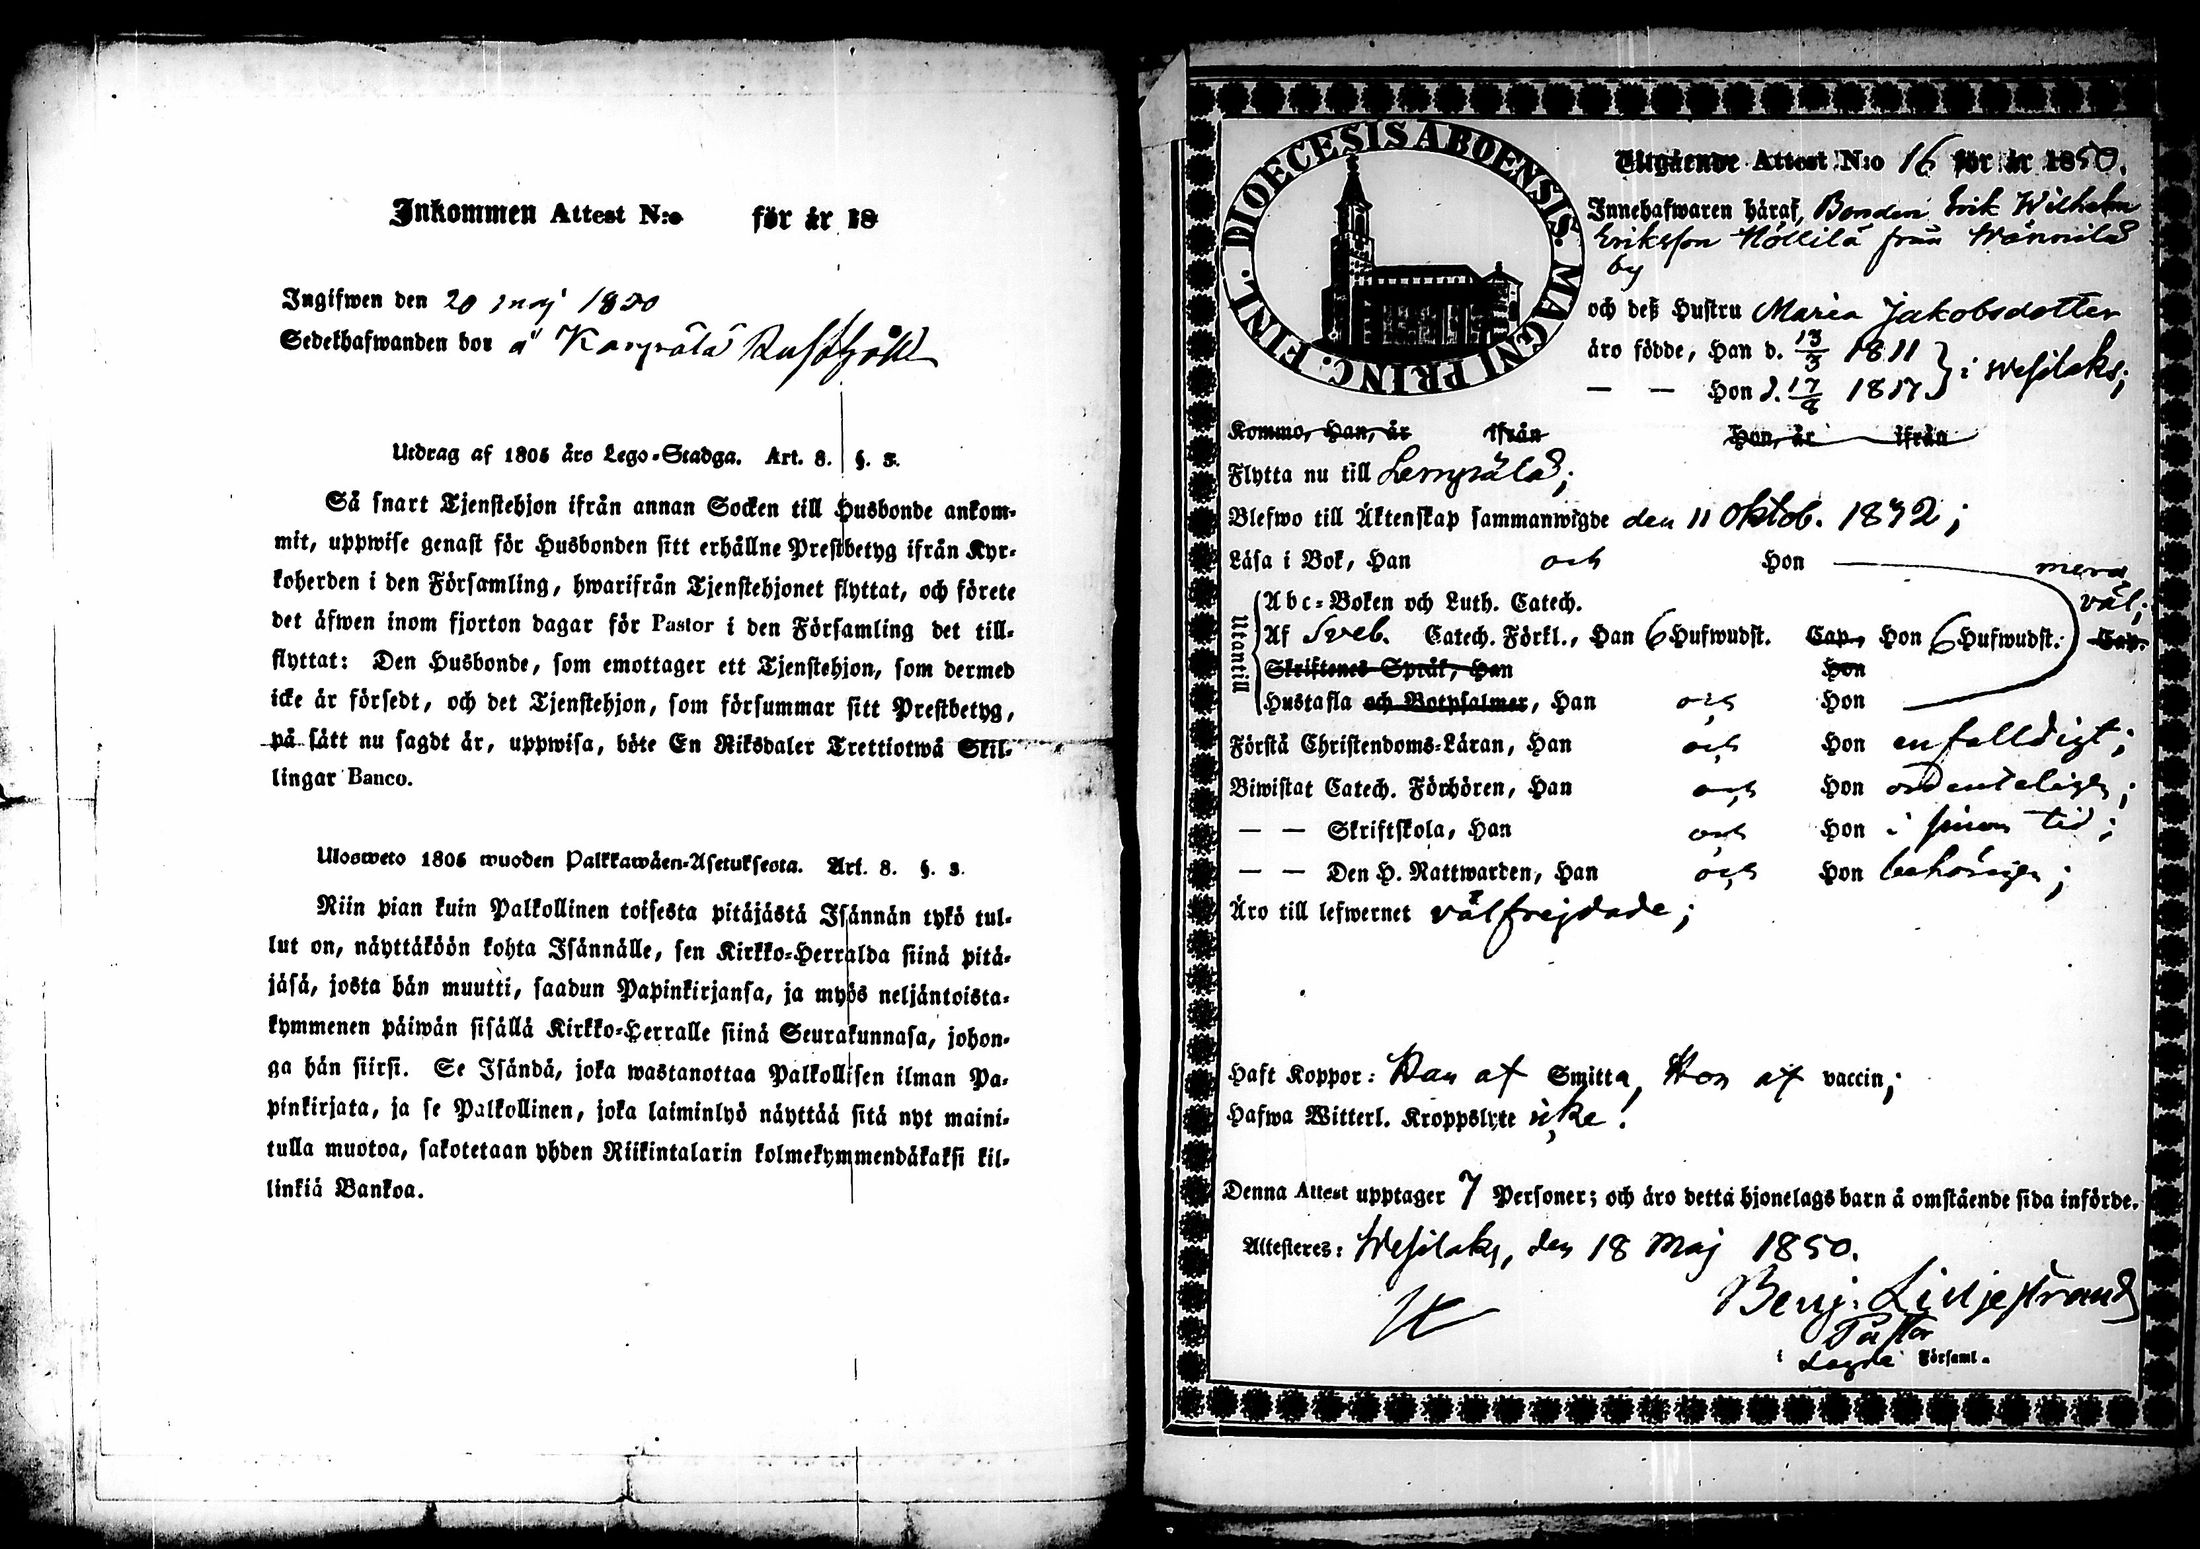 Inkommen Attest N:o för år 18
Ingifwen den 20 maj 1850
Sedelhafwanden bor å Kargrätä Rusthåll
Utdrag af 1805 års Lego-Stadga. Art. 8. §. 3.
Så snart Tjenstehjon ifrån annan Socken till Husbonde ankom-
mit, uppwise genast för Husbonden sitt erhållne Prestbetyg ifrån Kyr-
koherden i den Församling, hwarifrån Tjenstehjonet flyttat, och förete
det äfwen inom fjorton dagar för Pastor i den Församling det till-
flyttat: Den Husbonde, som emottager ett Tjenstehjon, som dermed
icke är försedt, och det Tjenstehjon, som försummar sitt Prestbetyg,
på sätt nu sagdt är, uppwisa, böte En Riksdaler Trettiotwå Skil-
lingar Banco.
Ulosweto 1805 wuoden Palkkawäen-Asetuksesta. Art. 8. §. 3.
Niin pian kuin Palkollinen toisesta pitäjästä Isännän tykö tul-
lut on, näyttäköön kohta Isännälle, sen Kirkko-Herralda siinä pitä-
jäsä, josta hän muutti, saadun Papinkirjansa, ja myös neljäntoista-
kymmenen päiwän sisällä Kirkko-Herralle siinä Seurakunnasa, johon-
ga hän siirsi. Se Isändä, joka wastanottaa Palkollisen ilman Pa-
pinkirjata, ja se Palkollinen, joka laiminlyö näyttää sitä nyt maini-
tulla muotoa, sakotetaan yhden Riikintalarin kolmekymmendäkaksi kil-
linkiä Bankoa.
DIOECESIS ABOENSIS. MAGNI PRINC. FINL.
Utgående Attest N:o 16 för år 1850.
Innehafwaren häraf, Bonden Erik Wilhelm
Eriksson Höllilä från Wännilä
by
och deß Hustru Maria Jakobsdotter
äro födde, Han d. 13/3 1811
— — Hon d. 17/8 1817 } i Wesilaks;
Kommo, Han, år ifrån Hon, år ifrån
Flytta nu till Lempälä;
Blefwo till Äktenskap sammanwigde den 11 Oktob. 1842;
Läsa i Bok, Han och Hon mera
väl;
Utantill
Abc-Boken och Luth. Catech.
Af Sveb. Catech. Förkl., Han 6 Hufwudst. Cap., Hon 6 Hufwudst. Cap.
Skriftenes Språk, Han Hon
Hustafla och Botpsalmer, Han och Hon
Förstå Christendoms-Läran, Han och Hon enfalldigt;
Biwistat Catech. Förhören, Han och Hon ordenteligen;
— — Skriftskola, Han och Hon i sinom tid;
— — Den H. Nattwarden, Han och Hon behörigen;
Äro till lefwernet välfrejdade;
Haft Koppor: Han af Smitta, Hon af vaccin;
Hafwa Witterl. Kroppslyte icke!
Denna Attest upptager 7 Personer; och äro detta hjonelags barn å omstående sida införde.
Attesteres: Wesilaks, den 18 Maj 1850.
Benj. Liljestrand
Pastor
i sagde Församl.